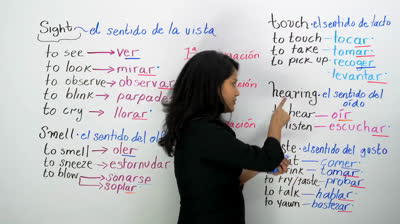 Sight → el sentido de la vista
to see → ver
to look → mirar
to observe → observar
to blink → parpade
to cry → llorar
Smell · el sentido del ol
to smell → oler
to sneeze → estornudar
to blow → sonarse
soplar
1ª
touch · el sentido de lacto
to touch - tocar
to take - tomar
to pick up recoger
levantar
hearing · el sentido del
oído
oír
listen - escuchar
el sentido del gusto
comer
tomar
to try/taste - probar
to talk - hablar
to yawn - bostezar